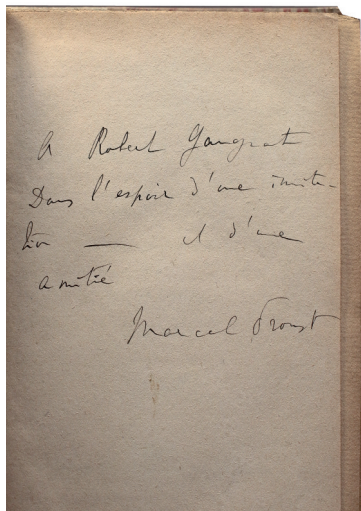 A Robert Gangnat
Dans l'espoir d'une invita-
tion — et d'une
amitié
Marcel Proust